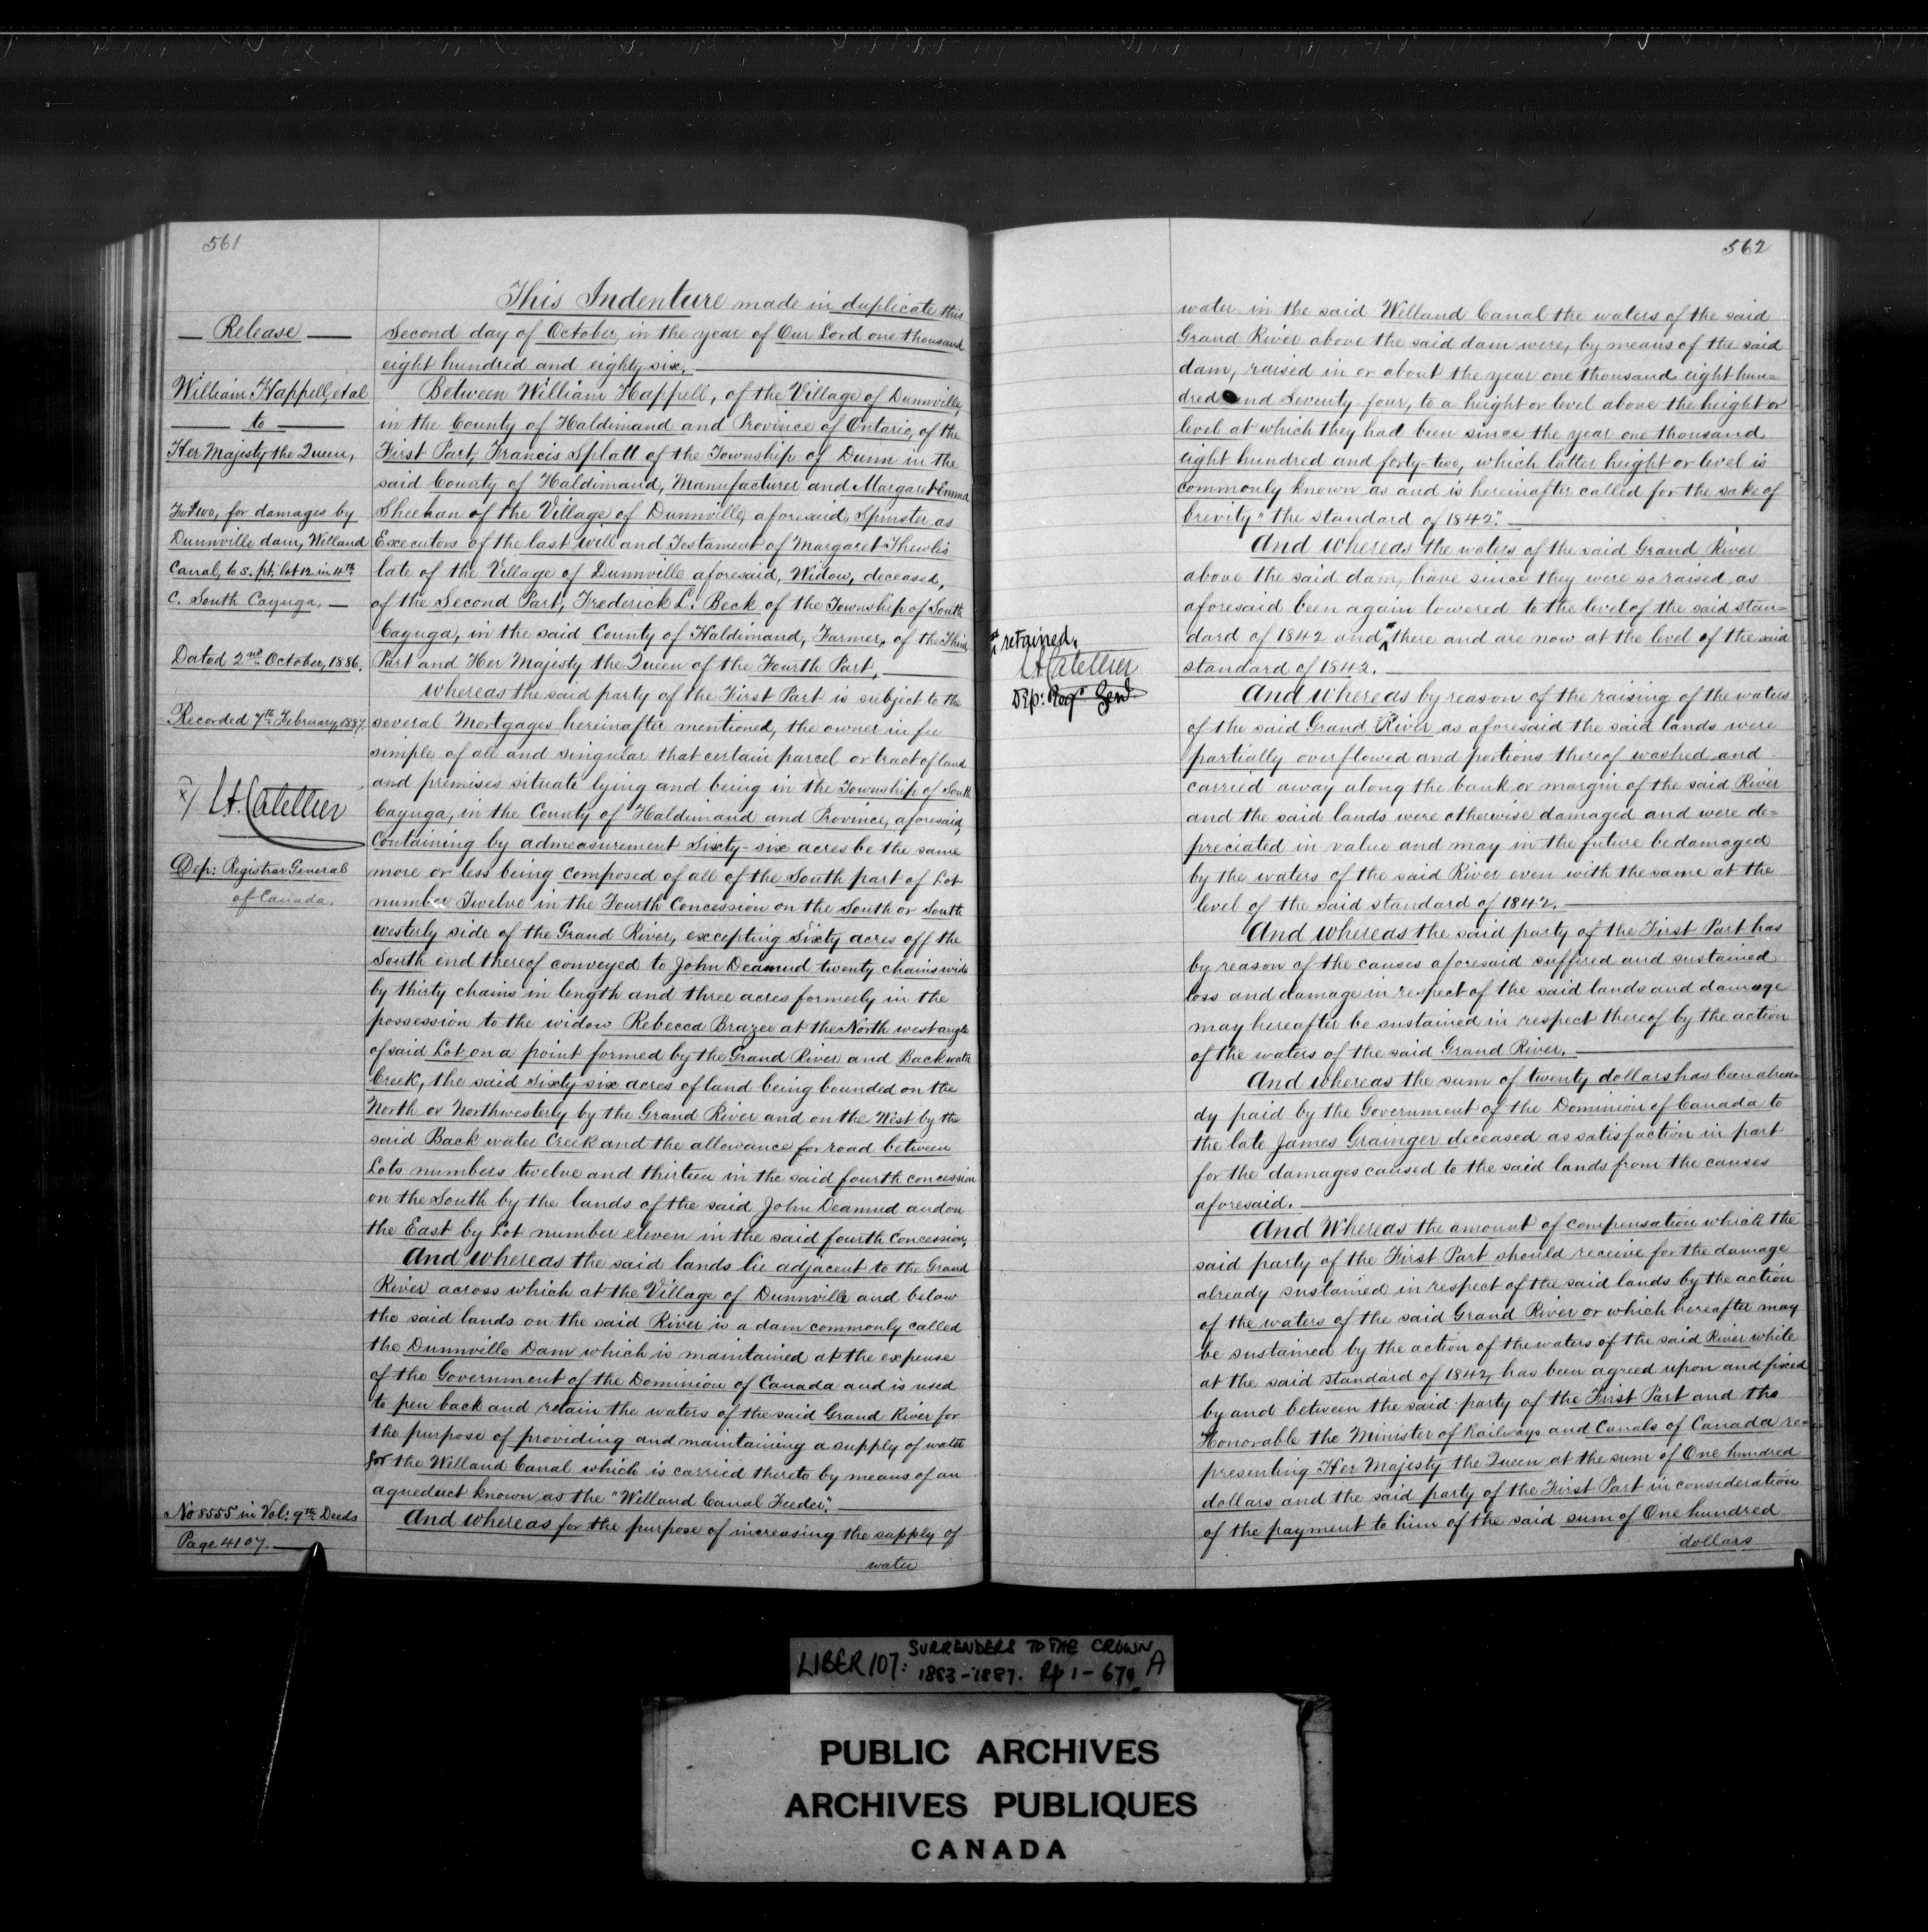 561
Release
William Happell, et al
to
Her Majesty the Queen,
for damages by
Dunnville dam, Welland
Canal, to S. pt. lot 12 in 4th
C. South Cayuga,
Dated 2nd October, 1886.
Recorded 7th February, 1887.
L. A. Catellier
Dep: Registrar General
of Canada.
No 8555 in Vol: 9th Deeds
Page 4107.
This Indenture made in duplicate this
Second day of October, in the year of Our Lord one thousand
eight hundred and eighty six,
Between William Happell, of the Village of Dunnville,
in the County of Haldimand and Province of Ontario, of the
First Part, Francis Splatt of the Township of Dunn in the
said County of Haldimand, Manufacturer and Margaret Emma
Sheehan of the Village of Dunnville, aforesaid, Spinster as
Executors of the last will and Testament of Margaret Thewlis
late of the Village of Dunnville aforesaid, Widow, deceased,
of the Second Part, Frederick L. Beck of the Township of South
Cayuga, in the said County of Haldimand, Farmer, of the Third
Part and Her Majesty the Queen of the Fourth Part,
Whereas the said party of the First Part is subject to the
several Mortgages hereinafter mentioned, the owner in fee
simple of all and singular that certain parcel or tract of land
and premises situate lying and being in the Township of South
Cayuga, in the County of Haldimand and Province, aforesaid,
Containing by admeasurement Sixty-six acres be the same
more or less being composed of all of the South part of Lot
number Twelve in the Fourth Concession on the South or South
westerly side of the Grand River, excepting Sixty acres off the
South end thereof conveyed to John Deamud twenty chains wide
by thirty chains in length and three acres formerly in the
possession to the widow Rebecca Brazee at the North west angle
of said Lot, on a point formed by the Grand River and Back water
Creek, the said Sixty-six acres of land being bounded on the
North or Northwesterly by the Grand River and on the West by the
said Back water Creek and the allowance for road between
Lots numbers twelve and thirteen in the said fourth concession
on the South by the lands of the said John Deamud and on
the East by Lot number eleven in the said fourth Concession,
And whereas the said lands lie adjacent to the Grand
River across which at the Village of Dunnville and below
the said lands on the said River is a dam commonly called
the Dunnville Dam which is maintained at the expense
of the Government of the Dominion of Canada and is used
to pen back and retain the waters of the said Grand River for
the purpose of providing and maintaining a supply of water
for the Welland Canal which is carried thereto by means of an
aqueduct known as the "Welland Canal Feeder".
And whereas for the purpose of increasing the supply of
water
562
retained,
L. A. Catellier
Dep: Reg. Genl
water in the said Welland Canal the waters of the said
Grand River above the said dam were, by means of the said
dam, raised in or about the year one thousand eight hun=
dred and Seventy-four, to a height or level above the height or
level at which they had been since the year one thousand
eight hundred and forty-two, which latter height or level is
commonly known as and is hereinafter called for the sake of
brevity "the standard of 1842".
And whereas the waters of the said Grand River
above the said dam, have since they were so raised as
aforesaid been again lowered to the level of the said stan=
dard of 1842 and there and are now at the level of the said
standard of 1842.
And whereas by reason of the raising of the waters
of the said Grand River as aforesaid the said lands were
partially overflowed and portions thereof washed and
carried away along the bank or margin of the said River
and the said lands were otherwise damaged and were de=
preciated in value and may in the future be damaged
by the waters of the said River even with the same at the
level of the said standard of 1842.
And whereas the said party of the First Part has
by reason of the causes aforesaid suffered and sustained
loss and damage in respect of the said lands and damage
may hereafter be sustained in respect thereof by the action
of the waters of the said Grand River.
And whereas the sum of twenty dollars has been alrea=
dy paid by the Government of the Dominion of Canada to
the late James Grainger deceased as satisfaction in part
for the damages caused to the said lands from the causes
aforesaid.
And Whereas the amount of compensation which the
said party of the First Part should receive for the damage
already sustained in respect of the said lands by the action
of the waters of the said Grand River or which hereafter may
be sustained by the action of the waters of the said River while
at the said standard of 1842, has been agreed upon and fixed
by and between the said party of the First Part and the
Honorable the Minister of Railways and Canals of Canada re=
presenting Her Majesty the Queen at the sum of One hundred
dollars and the said party of the First Part in consideration
of the payment to him of the said sum of One hundred
dollars
LIBER 107: SURRENDERS TO THE CROWN
1883-1887. Pp 1-679 A
PUBLIC ARCHIVES
ARCHIVES PUBLIQUES
CANADA